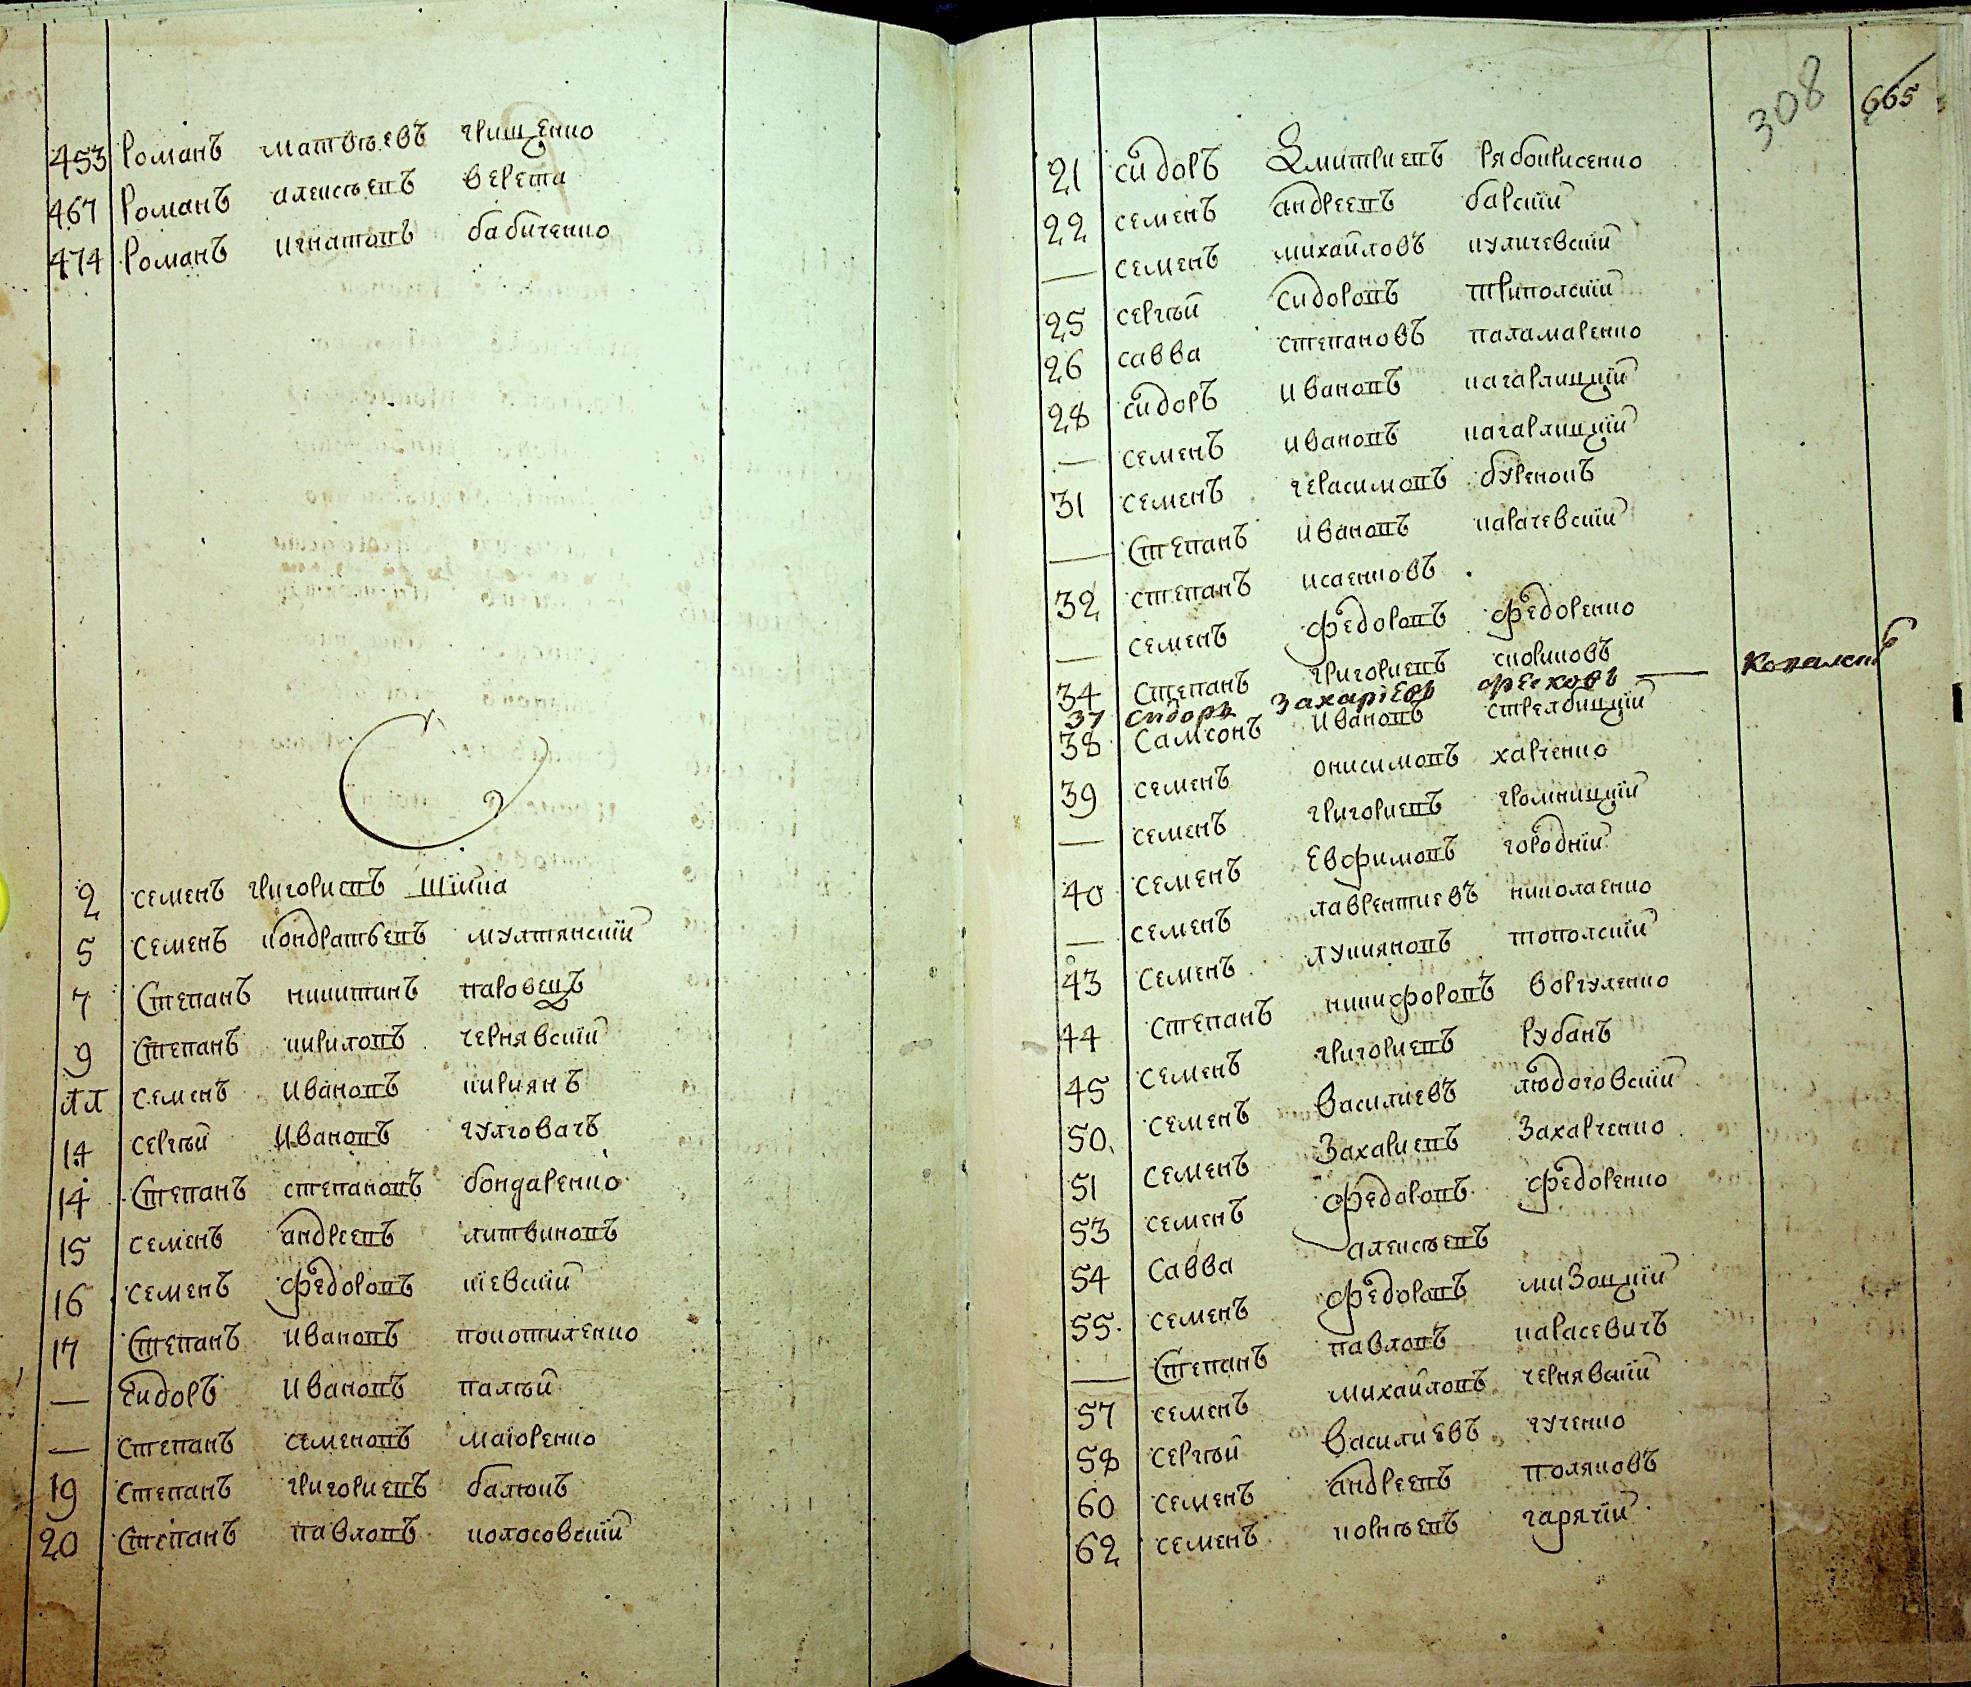 453 Романъ матвѣевъ грищенко
467 Романъ алексѣевъ верета
474 Романъ игнатовъ бабиченко
С
2 семенъ григориевъ шийка
5 семенъ кондратьевъ мултянский
7 Степанъ никитинъ паровецъ
9 Степанъ кириловъ чернявский
11 семенъ ивановъ кириянъ
14 сергѣй ивановъ гулговачъ
14 Степанъ степановъ бондаренко
15 семенъ андреевъ литвиновъ
16 семенъ федоровъ киевский
17 Степанъ ивановъ покотиленко
— Сидоръ ивановъ палѣй
— степанъ семеновъ маіоренко
19 степанъ григориевъ балюкъ
20 Степанъ павловъ колосовский
308 665
21 сидоръ Дмитриевъ рябокрисенко
22 семенъ андреевъ барский
— семенъ михайловъ куличевский
25 сергѣй сидоровъ триполский
26 савва степановъ паламаренко
28 сидоръ ивановъ кагарлицкий
— семенъ ивановъ кагарлицкий
31 семенъ герасимовъ буренокъ
— Степанъ ивановъ карачевский
32 степанъ исаенковъ
— семенъ федоровъ федоренко
34 Степанъ григориевъ скориковъ
37 Сидоръ Захариевъ орѣховъ —
38 Самсонъ ивановъ стрелбицкий
39 семенъ онисимовъ харченко
— семенъ григориевъ громницкий
40 семенъ Евфимовъ городний
— семенъ лаврентиевъ николаенко
43 семенъ лукияновъ тополский
44 степанъ никифоровъ воргуленко
45 семенъ григориевъ рубанъ
50. семенъ василиевъ людоговский
51 семенъ Захариевъ Захарченко
53 семенъ федоровъ федоренко
54 Савва алексѣевъ
55 семенъ федоровъ мизоцкий
— Степанъ павловъ карасевичъ
57 семенъ михайловъ чернявский
58 сергѣй василиевъ гученко
60 семенъ андреевъ поляковъ
62 семенъ корнѣевъ гарячий